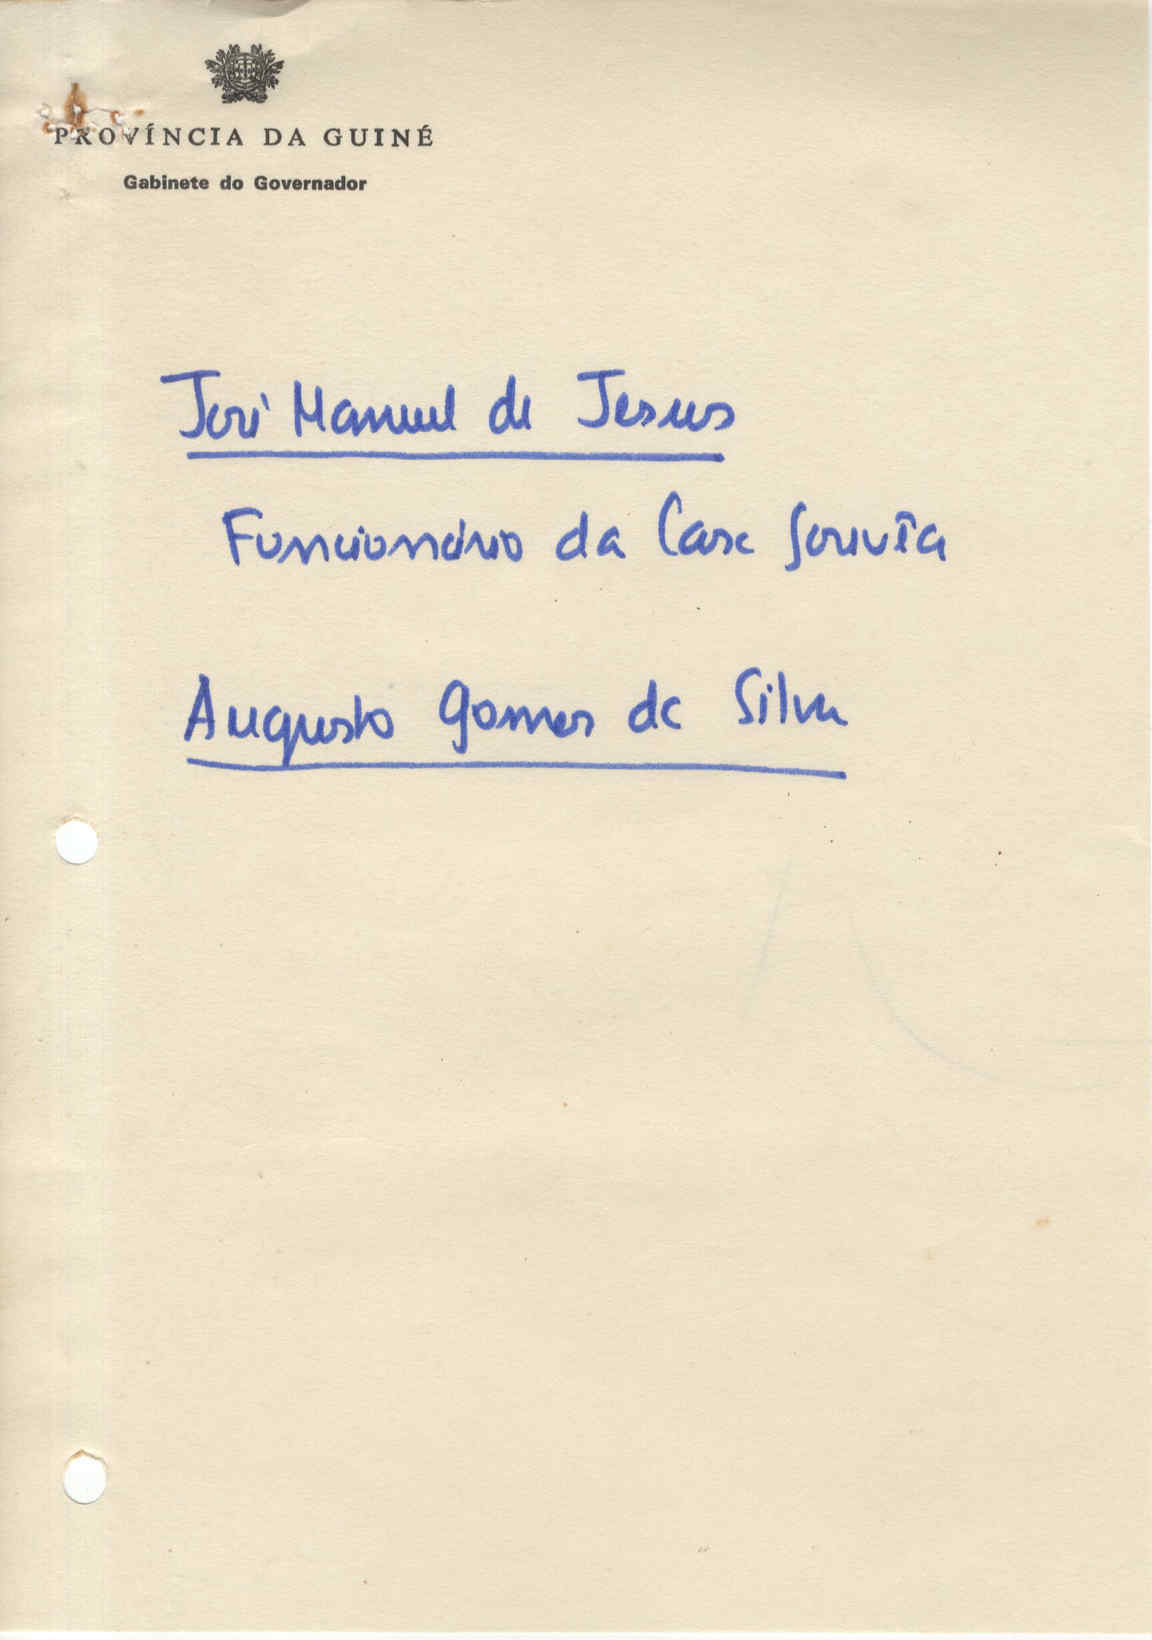 PROVÍNCIA DA GUINÉ
Gabinete do Governador
José Manuel de Jesus
Funcionário da Casa Gouvêa
Augusto Gomes da Silva